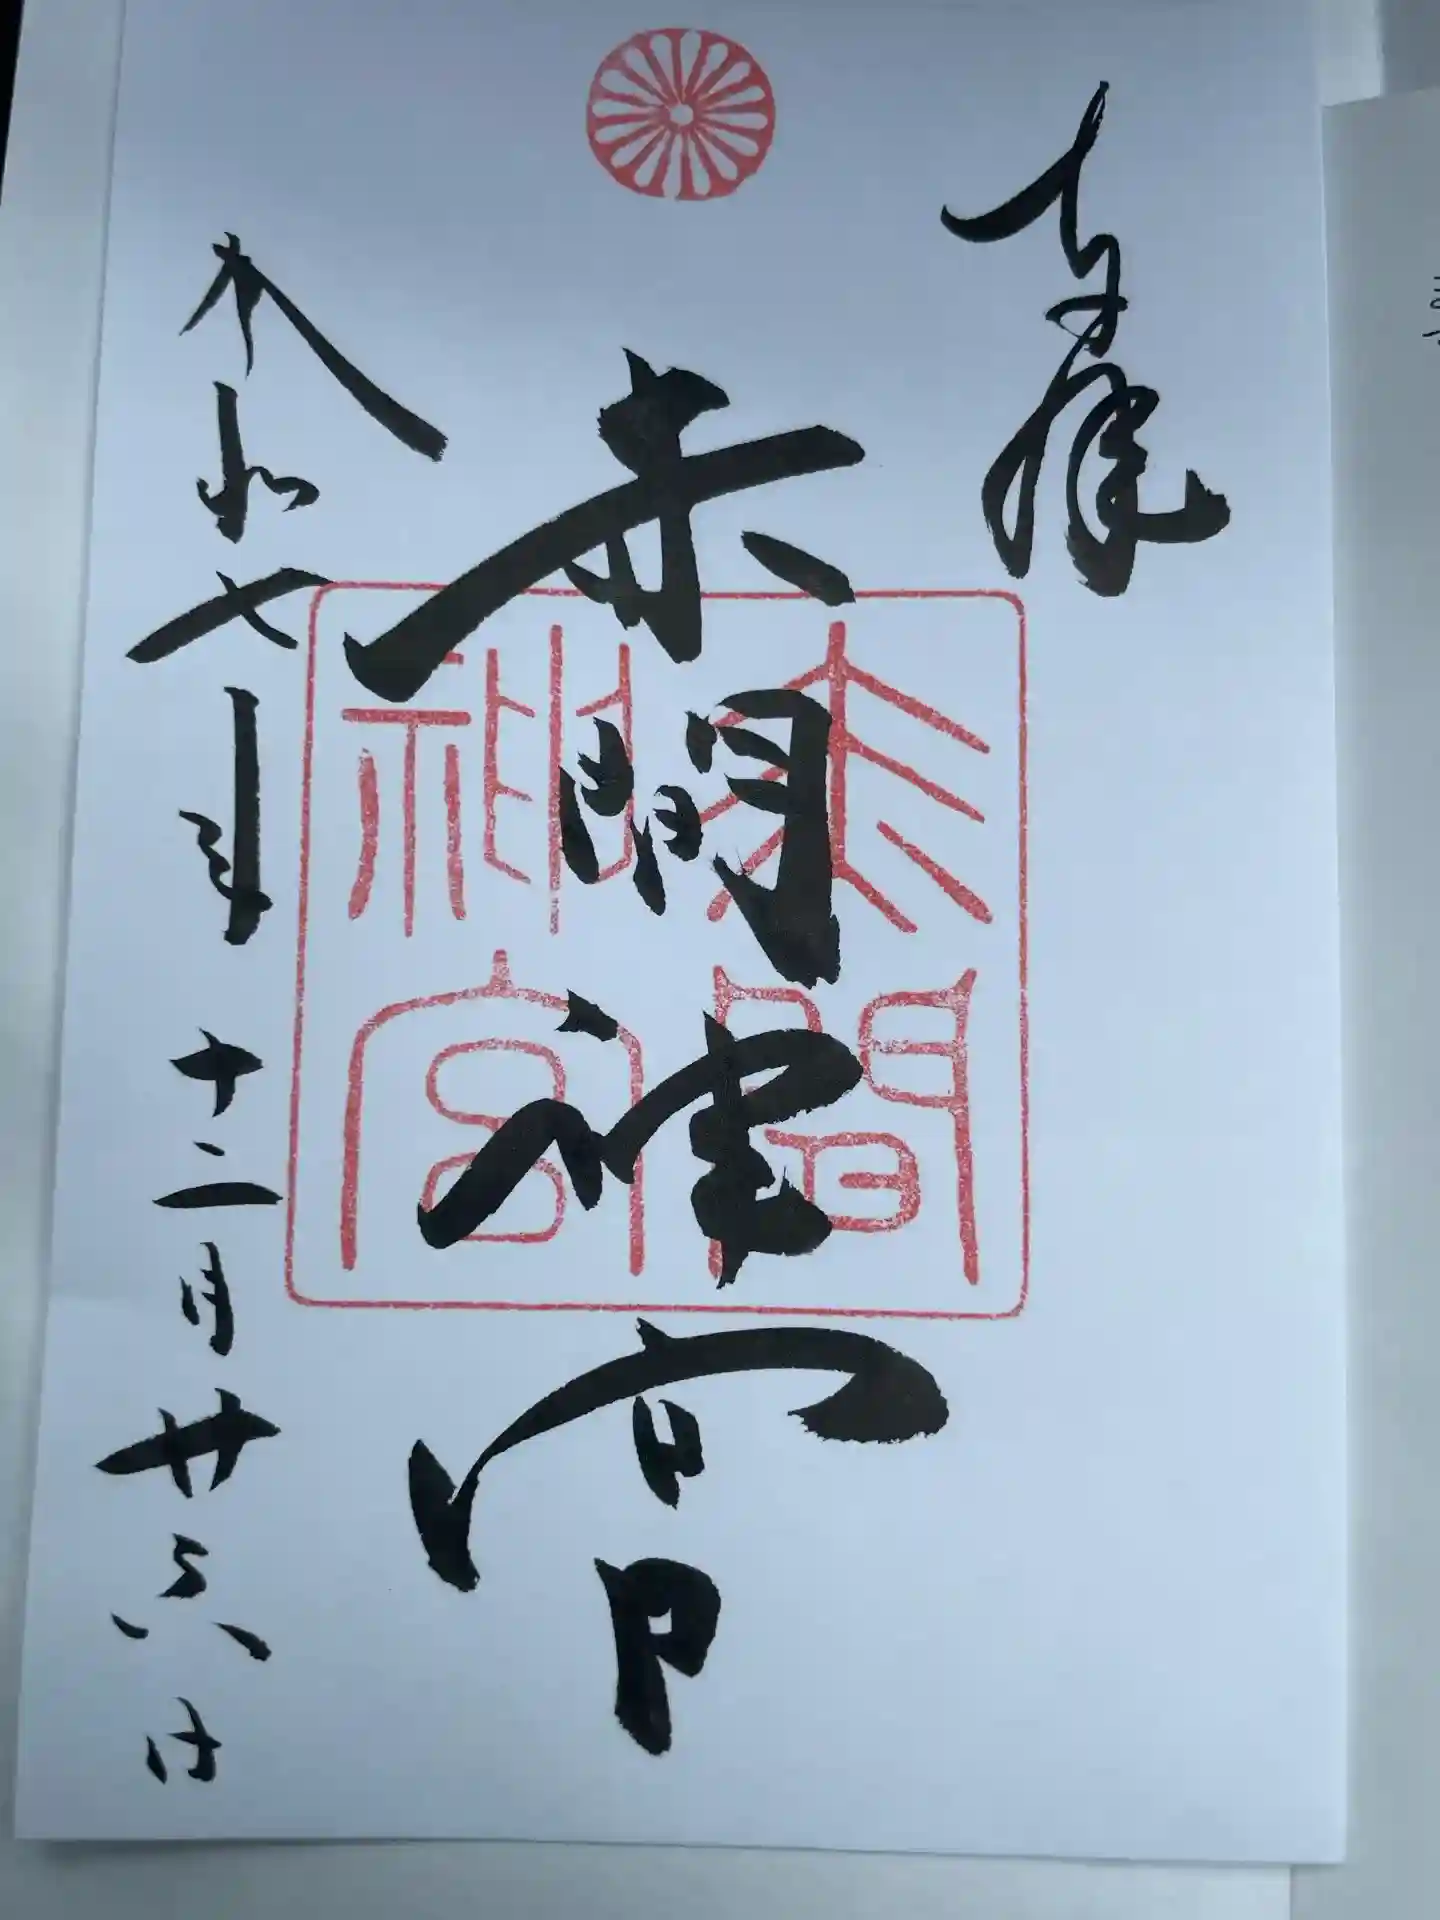 奉拝
赤間神宮
令和七年十二月廿六日
赤間
神宮